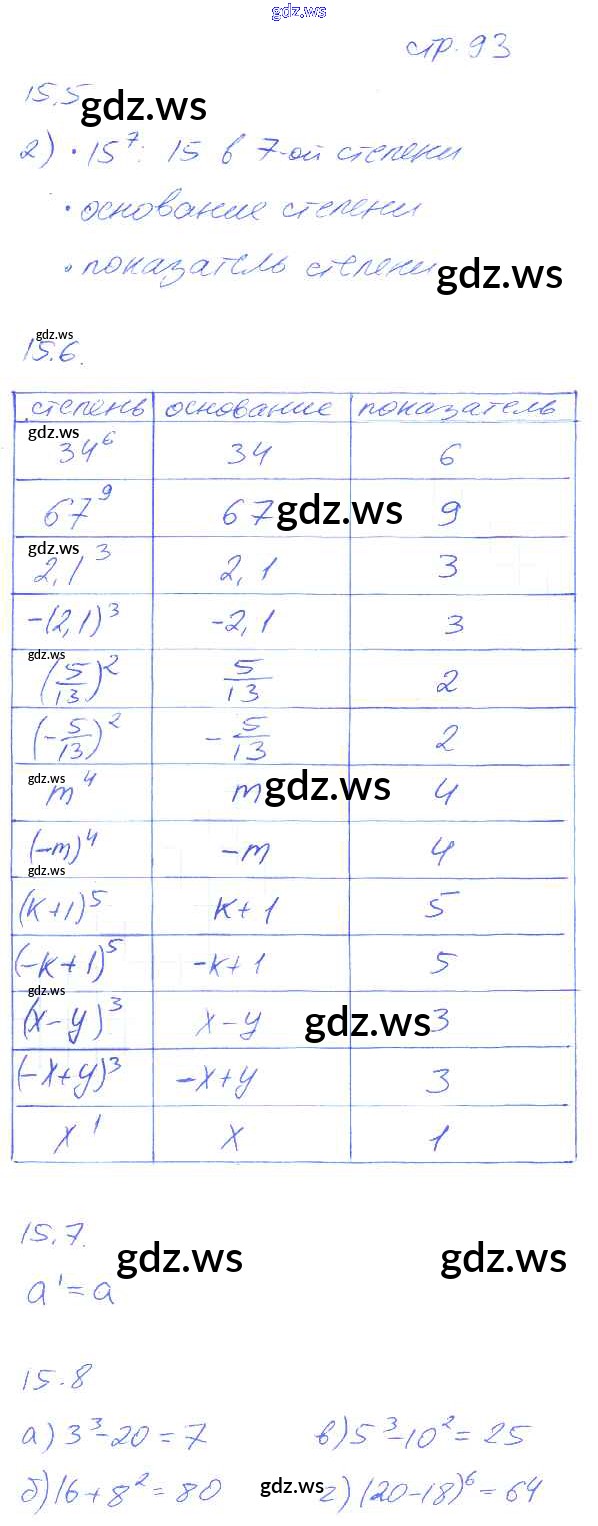 gdz.ws
стр. 93
15.5 gdz.ws
2) • 15⁷: 15 в 7-ой степени
• основание степени
• показатель степени gdz.ws
gdz.ws
15.6.
степень основание показатель
gdz.ws
34⁶ 34 6
67⁹ 67 gdz.ws 9
gdz.ws
2,1³ 2,1 3
-(2,1)³ -2,1 3
gdz.ws
(5/13)² 5/13 2
(-5/13)² -5/13 2
gdz.ws
m⁴ m gdz.ws 4
(-m)⁴ -m 4
gdz.ws
(k+1)⁵ k+1 5
(-k+1)⁵ -k+1 5
gdz.ws
(x-y)³ x-y gdz.ws 3
(-x+y)³ -x+y 3
x¹ x 1
15.7.
gdz.ws gdz.ws
a¹=a
15.8
а) 3³-20=7 в) 5³-10²=25
б) 16+8²=80 gdz.ws г) (20-18)⁶=64